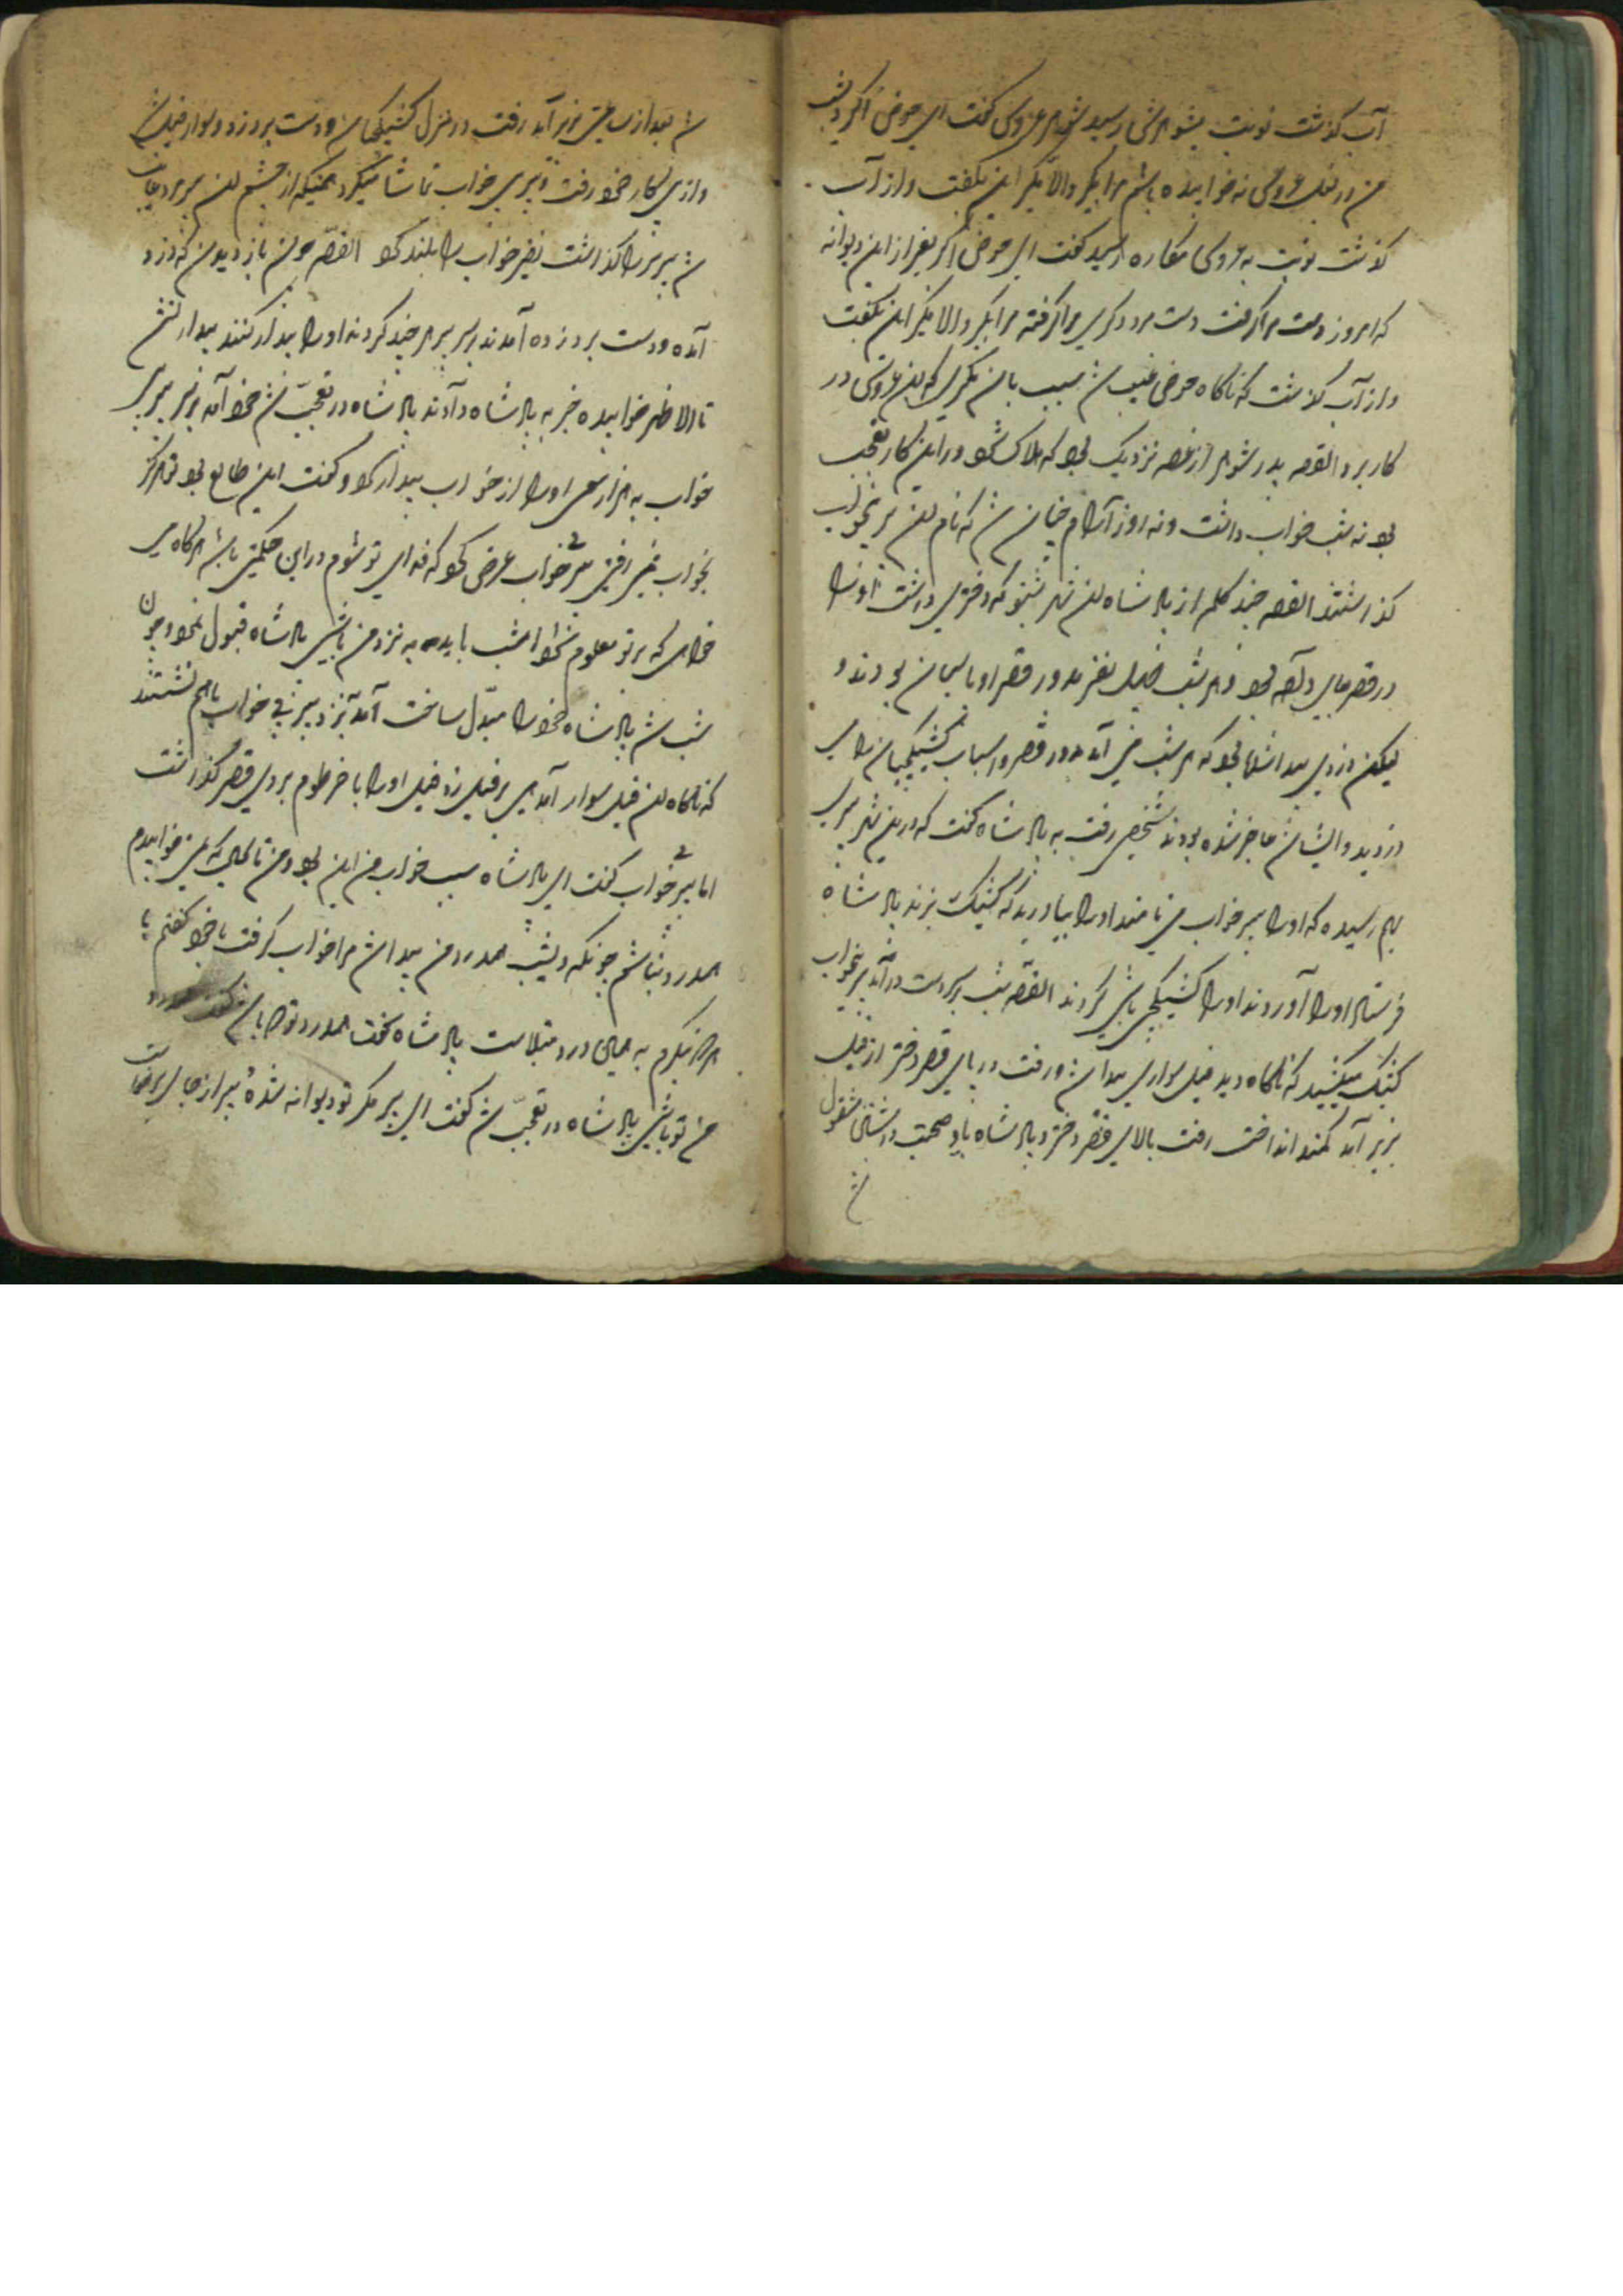 آب گذشت نوبت بشوهرش رسید شوهر عروس گفت ای حوض اگر دیشب
من در بغل عروس نه خوابیده باشم مرا بگیر والا نگیر این بگفت و از آب
گذشت نوبت به عروس مکاره رسید گفت ای حوض اگر بغیر از این دیوانه
که امروز دست مرا گرفت دست مرد دیگری مرا گرفته مرا بگیر والا نگیر این بگفت
و از آب گذشت که ناگاه حوض غیب شد بسبب بان مکری که این عروس در
کار برد القصه پدر شوهر از غصه نزدیک بود که هلاک شود در این کار تعجب
بود نه شب خواب داشت و نه روز آرام چنان شد که نام این پیر بیخواب
گذاشتند القصه چند کلمه از پادشاه این شهر شنو که دختری داشت او را
در قصر جای داده بود و هر شب چهل نفر بدور قصر او پاسبان بودند و
لیکن دزدی پیدا شده بود که هر شب می آمد بدور قصر و اسباب کشیکچیان را می
دزدید و ایشان عاجز شده بودند شخصی رفت به پادشاه گفت که در این شهر پیری
بهم رسیده که او را پیر بیخواب می نامند او را بیاورید که کشیک بزند پادشاه
فرستاد او را آوردند او را کشیکچی باشی کردند القصه شب بر سر دست درآمد پیر بیخواب
کشیک میکشید که ناگاه دید فیل سواری پیدا شد و رفت در پای قصر دختر از فیل
بزیر آمد کمند انداخت رفت بالای قصر دختر پادشاه با او صحبت داشتن مشغول
شد
شد بعد از ساعتی بزیر آمد رفت در منزل کشیکچیان و دست برد زد و سوار فیل شد
و از پی کار خود رفت و پیر بی خواب تماشا میکرد همینکه از چشم این پیر رد غایب
شد پیر سر را گذاشت نفیر خواب را بلند کرد القصه چون باز دیدند که دزد
آمده و دست برد زده آمدند بر سر پیر هر چند کردند او را بیدار کنند بیدار نشد
تا الا ظهر خوابیده خبر به پادشاه دادند پادشاه در تعجب شد خود آمد بر سر پیر بی
خواب به هزار سعی او را از خواب بیدار کرد و گفت این طالع بود تو هرگز
بخواب نمی رفتی پیر بیخواب عرض کرد که فدای تو شوم در این حکمتی باشد هرگاه می
خواهی که بر تو معلوم شود امشب باید به نزد من باشی پادشاه قبول نمود و چون
شب شد پادشاه خود را مبدل ساخت آمد نزد پیر بی خواب باهم نشستند
که ناگاه این فیل سوار آمد هی بر فیل زد فیل او را با خرطوم بر روی قصر گذاشت
اما پیر بیخواب گفت ای پادشاه سبب خواب من این بود و من تا بحال که نمی خوابیدم
همدرد نداشتم چونکه دیشب همدرد من پیدا شد مرا خواب گرفت با خود گفتم
به همین درد مبتلاست پادشاه گفت همدرد تو کیست گفت همدرد
من تو باشی پادشاه در تعجب شد گفت ای پیر مگر تو دیوانه شدهٔ پیر از جای برخواست